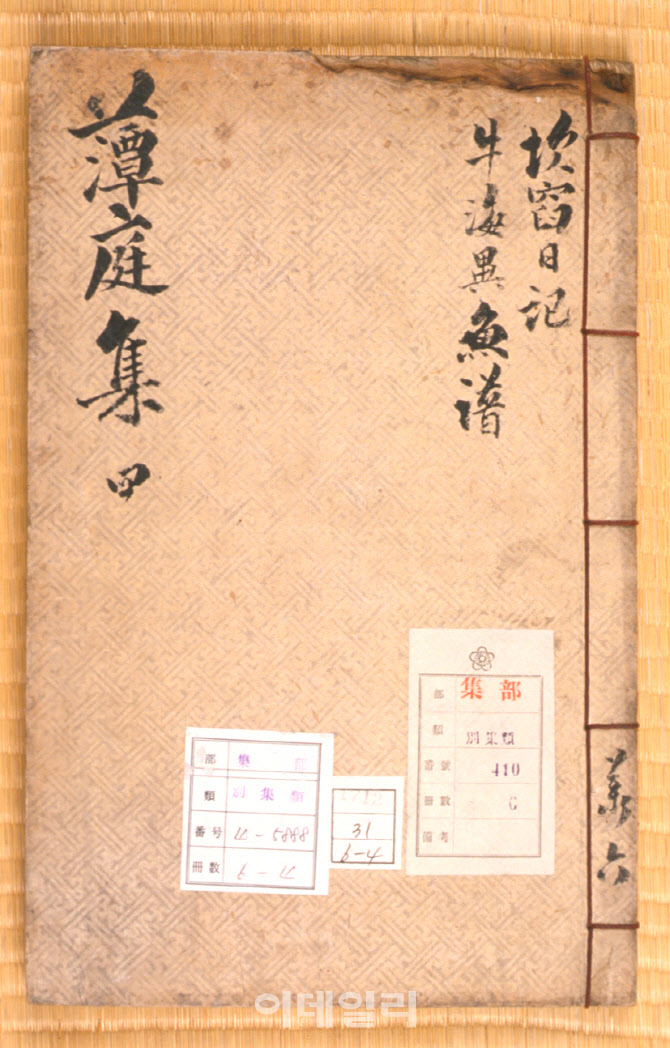 坎窞日記
牛海異魚譜
藫庭集 甲
共六
部 集部
類 別集類
番號 410
冊數 6
備考
部 集部
類 別集類
番号 4-5888
冊數 6-4
31
6-4
이데일리